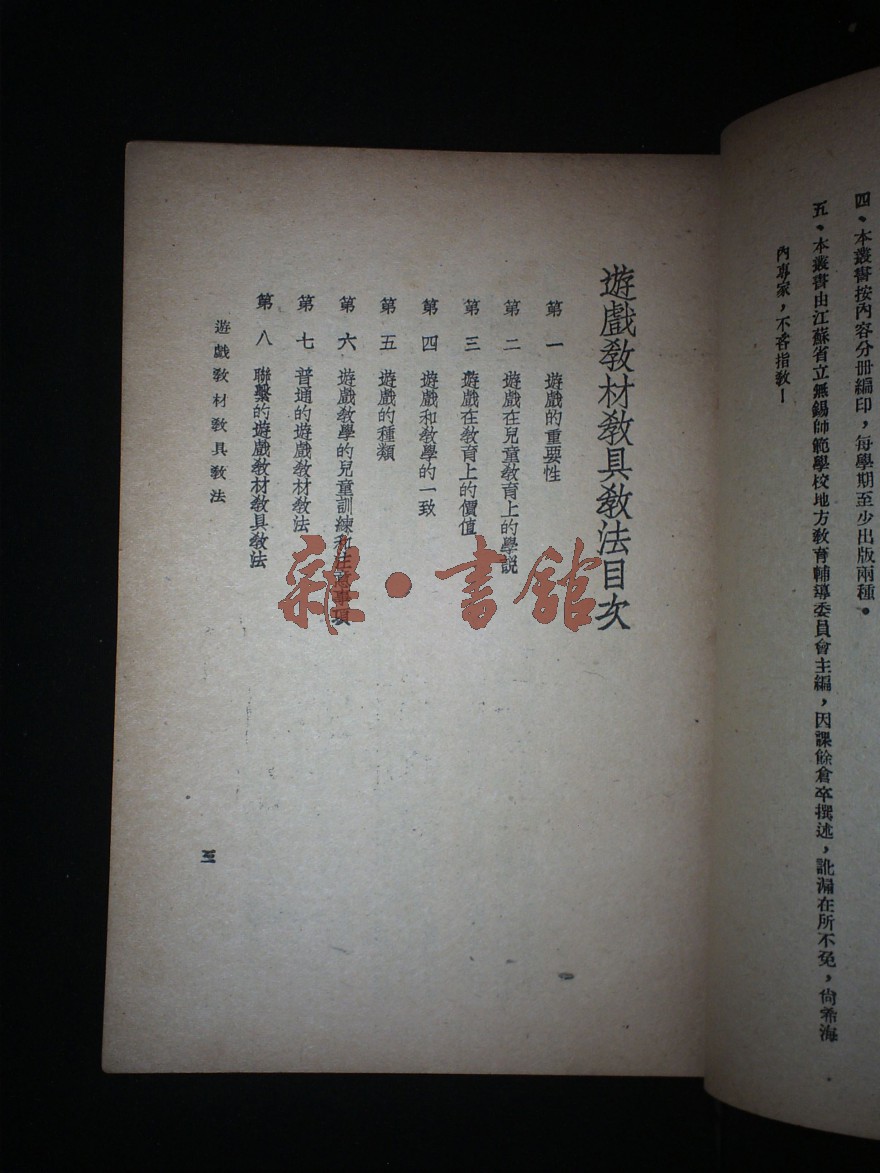 四、本叢書按內容分冊編印，每學期至少出版兩種。
五、本叢書由江蘇省立無錫師範學校地方敎育輔導委員會主編，因課餘倉卒撰述，訛漏在所不免，尙希海
內專家，不吝指敎！
遊戲敎材敎具敎法目次
第一 遊戲的重要性
第二 遊戲在兒童敎育上的學說
第三 遊戲在敎育上的價值
第四 遊戲和敎學的一致
第五 遊戲的種類
第六 遊戲敎學的兒童訓練和注意事項
第七 普通的遊戲敎材敎法
第八 聯繫的遊戲敎材敎具敎法
遊戲敎材敎具敎法
三
雜·書館